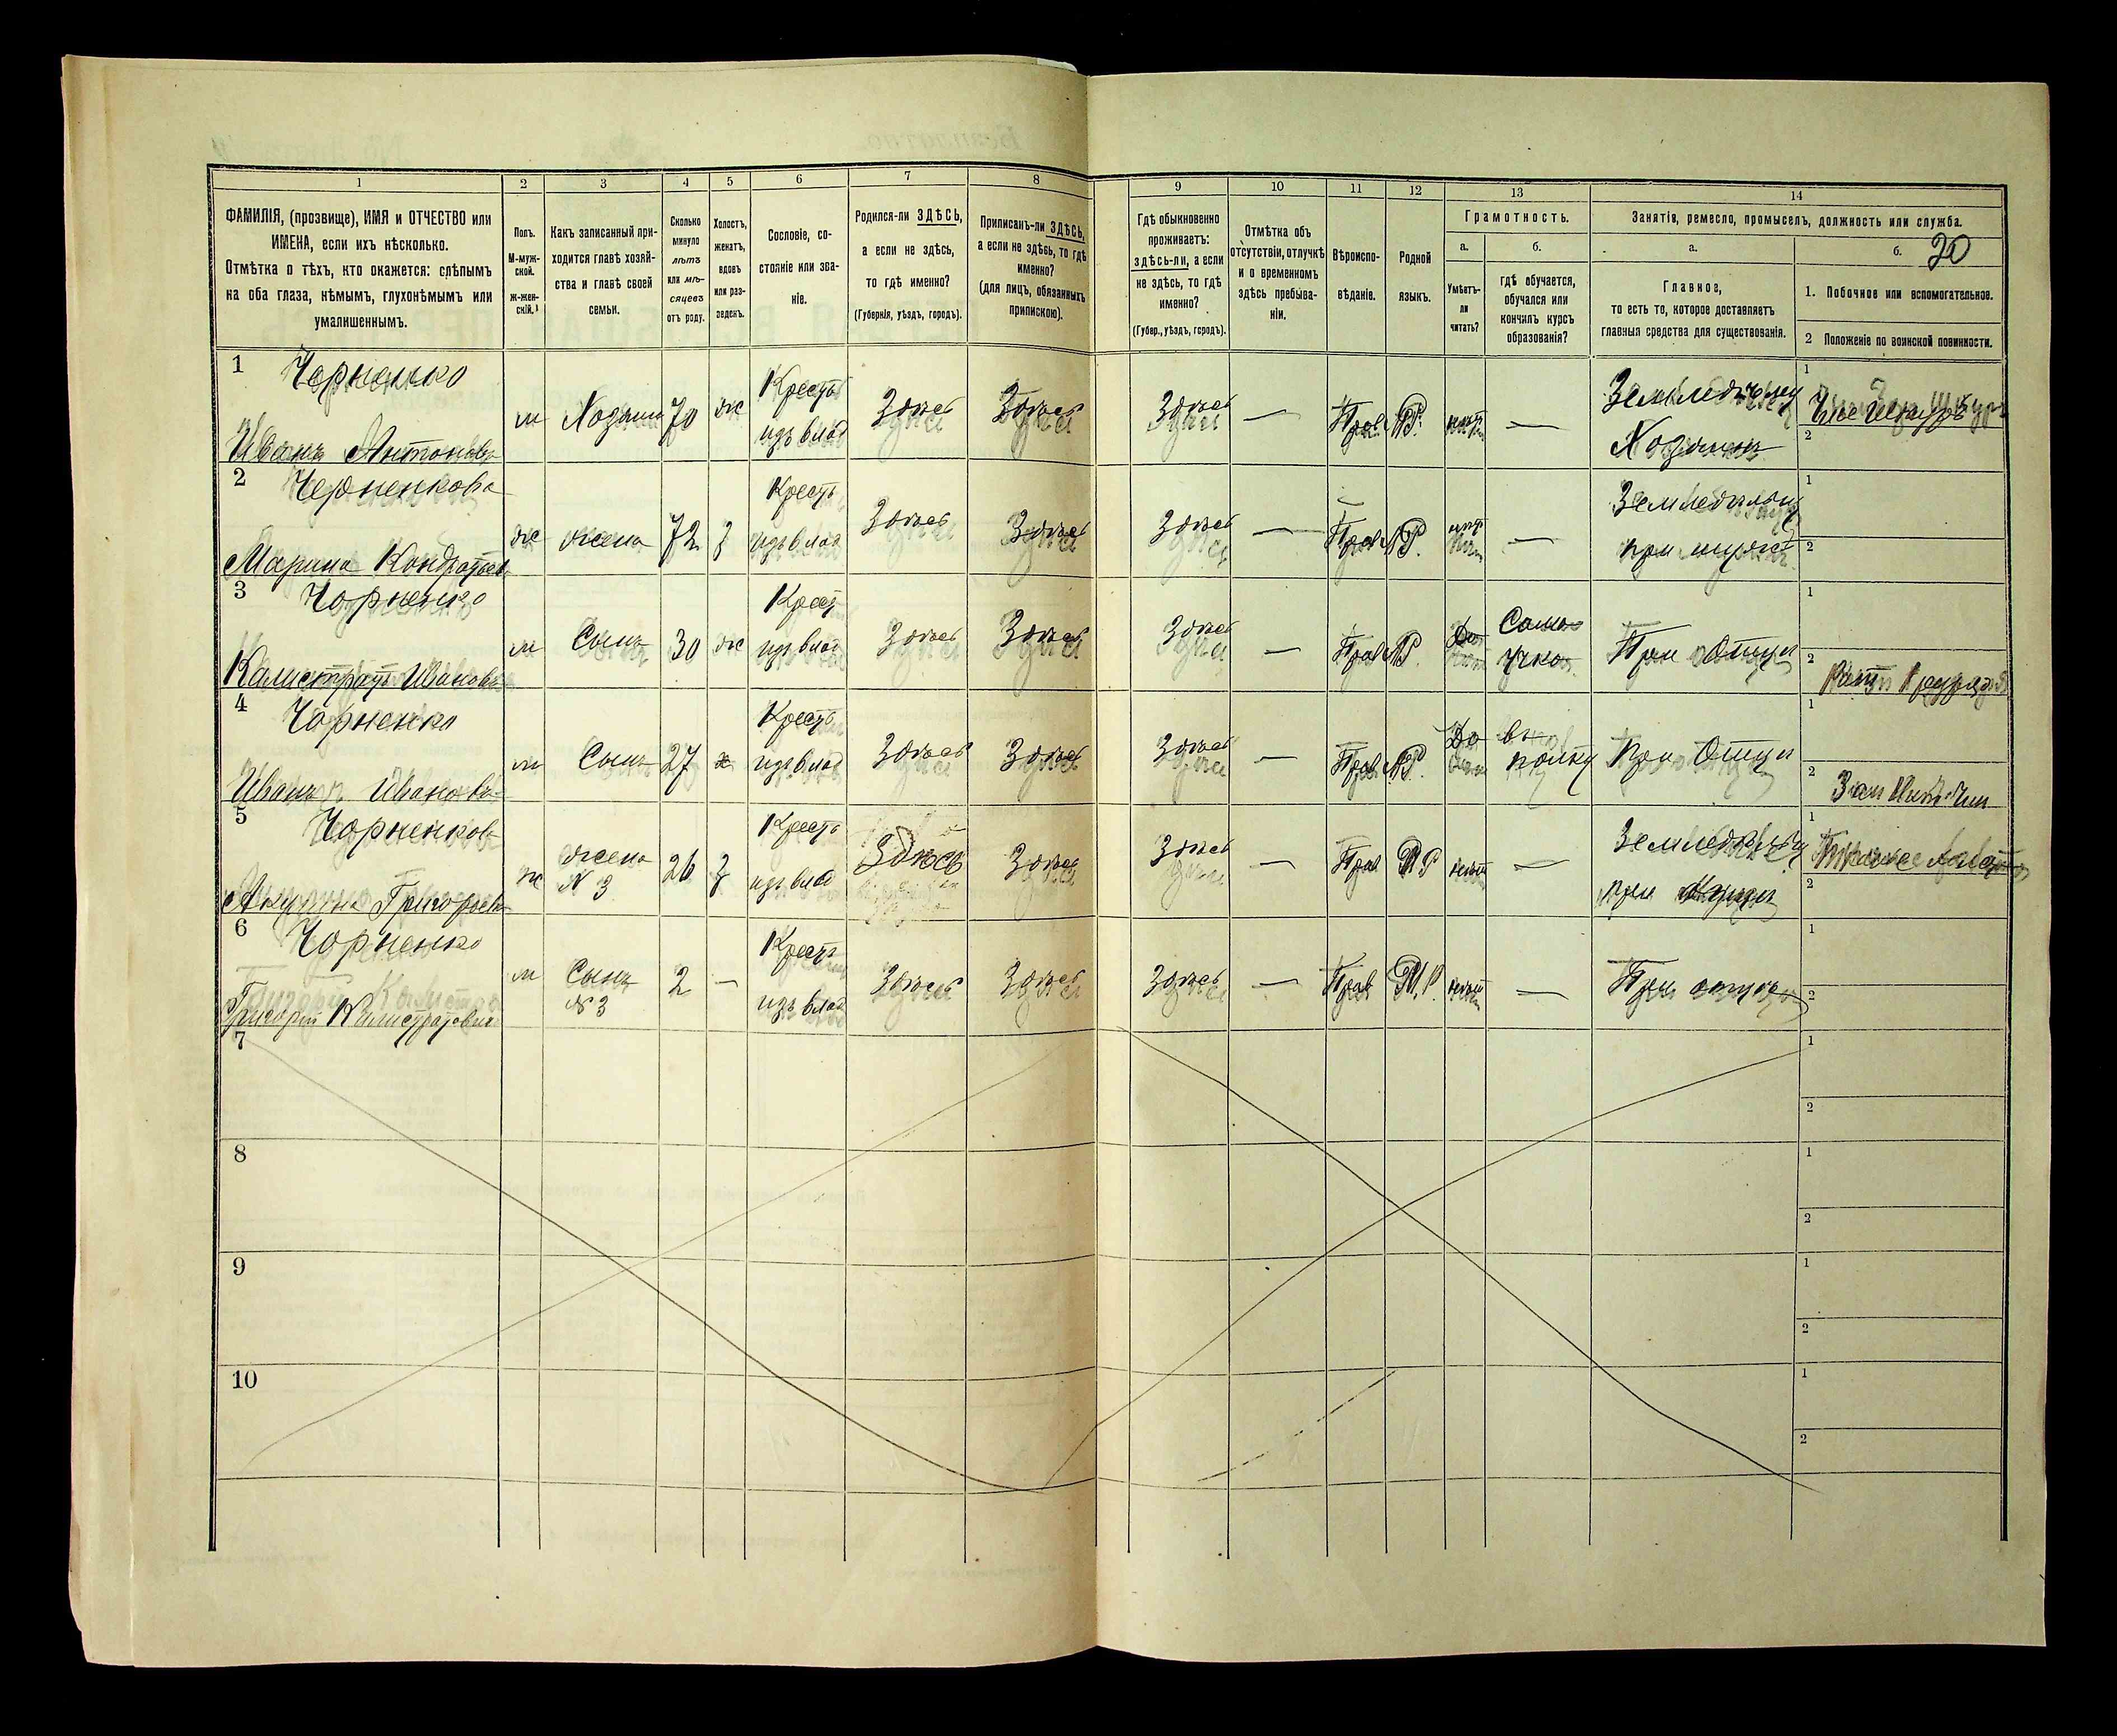 20
1 2 3 4 5 6 7 8 9 10 11 12 13 14
ФАМИЛІЯ, (прозвище), ИМЯ и ОТЧЕСТВО или
ИМЕНА, если ихъ нѣсколько.
Отмѣтка о тѣхъ, кто окажется: слѣпымъ
на оба глаза, нѣмымъ, глухонѣмымъ или
умалишеннымъ.
Полъ.
М-муж-
ской.
ж-жен-
скій.
Какъ записанный при-
ходится главѣ хозяй-
ства и главѣ своей
семьи.
Сколько
минуло
лѣтъ
или мѣ-
сяцевъ
отъ роду.
Холостъ,
женатъ,
вдовъ
или раз-
веденъ.
Сословіе, со-
стояніе или зва-
ніе.
Родился-ли ЗДѢСЬ,
а если не здѣсь,
то гдѣ именно?
(Губернія, уѣздъ, городъ).
Приписанъ-ли ЗДѢСЬ,
а если не здѣсь, то гдѣ
именно?
(для лицъ, обязанныхъ
припискою).
Гдѣ обыкновенно
проживаетъ:
здѣсь-ли, а если
не здѣсь, то гдѣ
именно?
(Губер., уѣздъ, городъ).
Отмѣтка объ
отсутствіи, отлучкѣ
и о временномъ
здѣсь пребыва-
ніи.
Вѣроиспо-
вѣданіе.
Родной
языкъ.
Грамотность.
а.
Умѣетъ-
ли
читать?
б.
гдѣ обучается,
обучался или
кончилъ курсъ
образованія?
Занятія, ремесло, промыселъ, должность или служба.
а.
Главное,
то есть то, которое доставляетъ
главныя средства для существованія.
б.
1. Побочное или вспомогательное.
2 Положеніе по воинской повинности.
1 Чорненько
Иванъ Антоновъ
м Хозяинъ 70 ж Крестъ
изъ влад Здѣсь Здѣсь Здѣсь — Прав М.Р. нѣтъ — Земледѣлец
Хозяинъ
1
2
2 Черненкова
Марина Кондратьев
ж жена 72 з Крестъ
изъ влад Здѣсь Здѣсь Здѣсь — Прав М.Р. нѣт — Земледѣлец
при мужѣ
1
2
3 Чорненко
Калистратъ Ивановъ
м Сынъ 30 ж Крест
изъ влад Здѣсь Здѣсь Здѣсь — Прав М.Р. Да Само
учкой При Отцѣ
1
2 Ратн 1 разряда
4 Чорненко
Иванъ Ивановъ
м Сынъ 27 х Крестъ
изъ влад Здѣсь Здѣсь Здѣсь — Прав М.Р. Да въ
полку При Отцѣ
1
2 Зап Ниж. Чин
5 Чорненкова
Акулина Григорьев
ж жена
№ 3 26 з Крестъ
изъ влад Здѣсь Здѣсь Здѣсь — Прав М.Р нѣтъ — Земледѣлец
при мужѣ
1
2
6 Чорненко
Григорій Калистратовичъ
м Сынъ
№ 3 2 — Крестъ
изъ влад Здѣсь Здѣсь Здѣсь — Прав М.Р. нѣтъ — При отцѣ
1
2
7
1
2
8
1
2
9
1
2
10
1
2